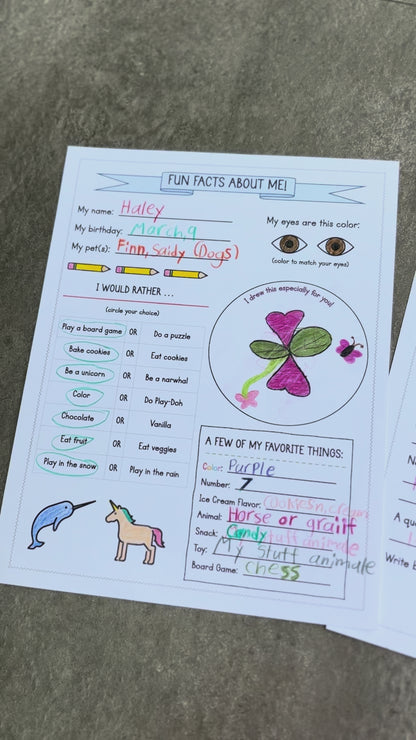 FUN FACTS ABOUT ME!
My name: Haley
My birthday: March, 9
My pet(s): Finn, Saidy (Dogs)
My eyes are this color:
(color to match your eyes)
I WOULD RATHER ...
(circle your choice)
Play a board game OR Do a puzzle
Bake cookies OR Eat cookies
Be a unicorn OR Be a narwhal
Color OR Do Play-Doh
Chocolate OR Vanilla
Eat fruit OR Eat veggies
Play in the snow OR Play in the rain
I drew this especially for you!
A FEW OF MY FAVORITE THINGS:
Color: Purple
Number: 7
Ice Cream Flavor: Cookiesn,cream
Animal: Horse or graiff
Snack: Candy
Toy: My Stuff animale
Board Game: chess
A qu
Write b